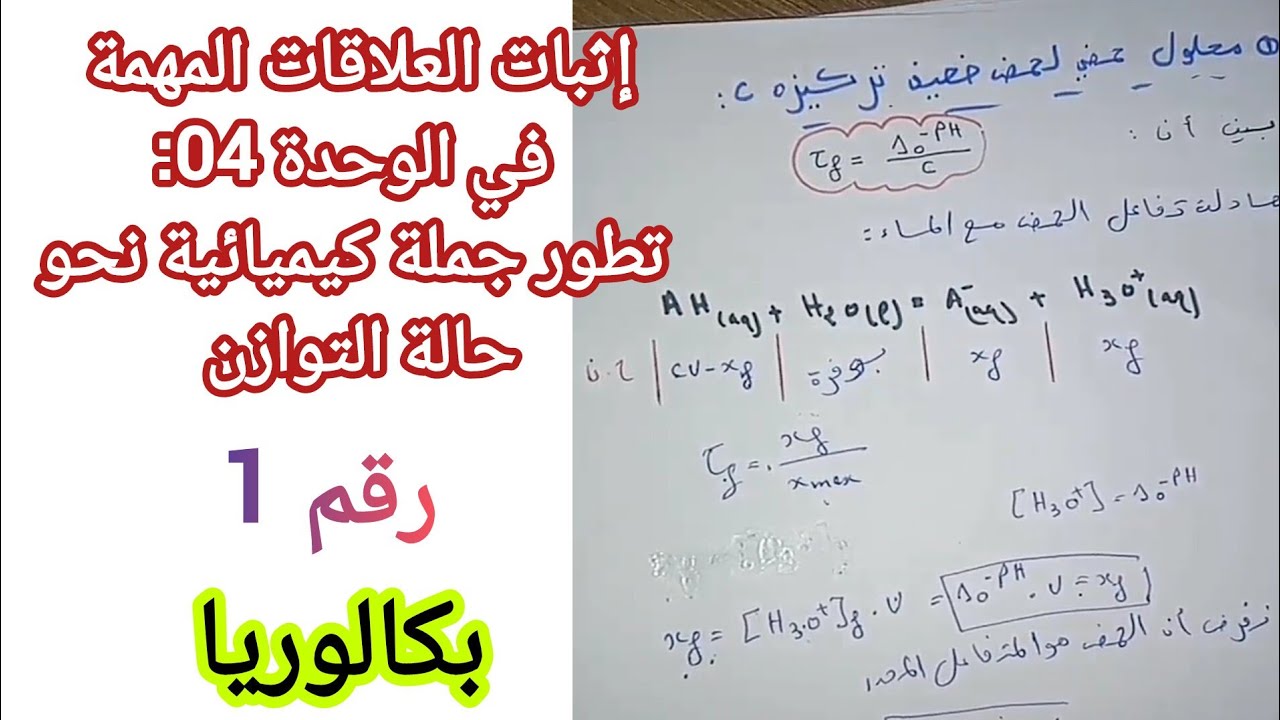 إثبات العلاقات المهمة
في الوحدة 04:
تطور جملة كيميائية نحو
حالة التوازن
رقم 1
بكالوريا
① محلول حمضي لحمض ضعيف تركيزه c :
بين أن :
τf = 10^-PH / c
معادلة تفاعل الحمض مع الماء :
AH(aq) + H2O(l) = A-(aq) + H3O+(aq)
ح.ن | cv-xf | بوفرة | xf | xf
τf = xf / xmax
[H3O+] = 10^-PH
xf = [H3O+]f . v = 10^-PH . v = xf
نفرض أن الحمض هو المتفاعل المحد